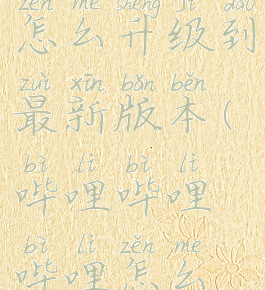 zěn me shēng jí dào
怎么升级到
zuì xīn bǎn běn
最新版本(
bì lì bì lì
哔哩哔哩
bì lì zěn me
哔哩怎么